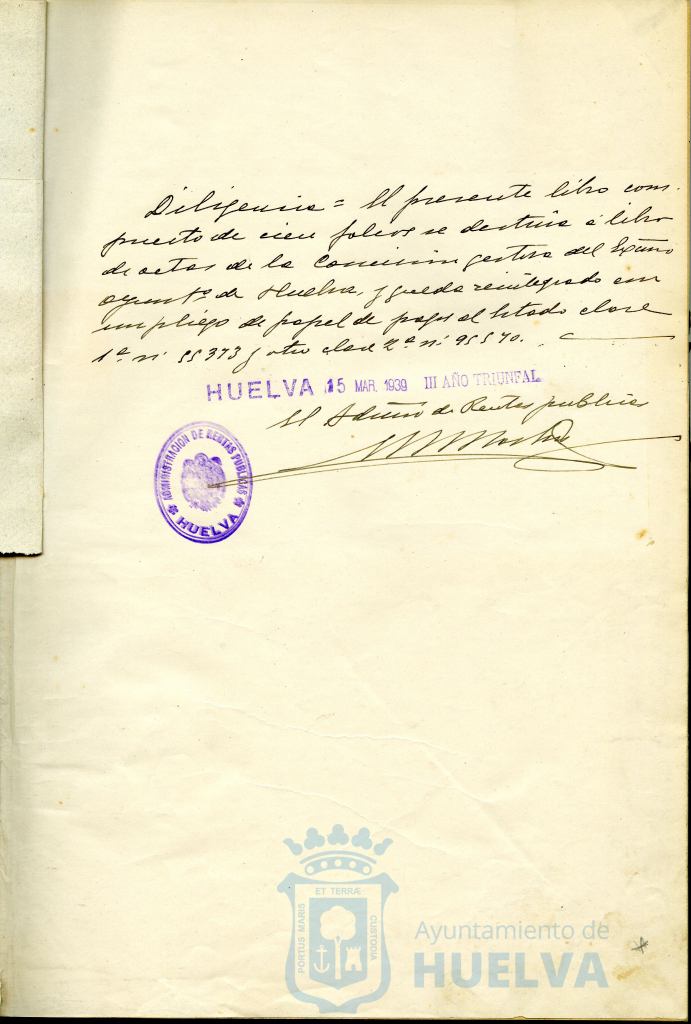 Diligencia = El presente libro com-
puesto de cien folios se destina á libro
de actas de la Comision gestora del Excmo
ayuntº de Huelva, y queda reintegrado con
un pliego de papel de pagos al Estado clase
1ª nº 55373 y otro clase 2ª nº 95570.
HUELVA 15 MAR. 1939 III AÑO TRIUNFAL
El Admor de Rentas publicas
ADMINISTRACION DE RENTAS PUBLICAS
HUELVA
ET TERRÆ
PORTUS MARIS
CUSTODIA
Ayuntamiento de
HUELVA